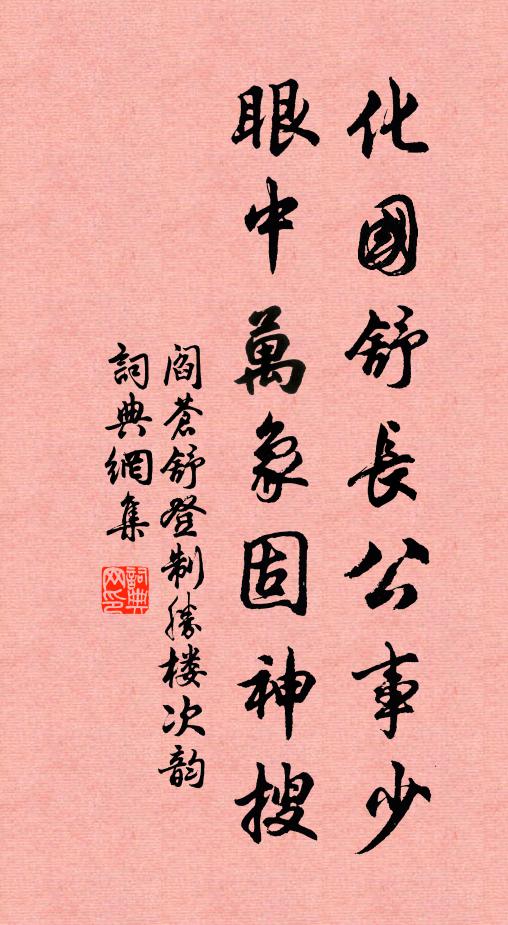 化國舒長公事少
眼中萬象固神搜
閻蒼舒登制勝楼次韵
詞典網集
詞典网印